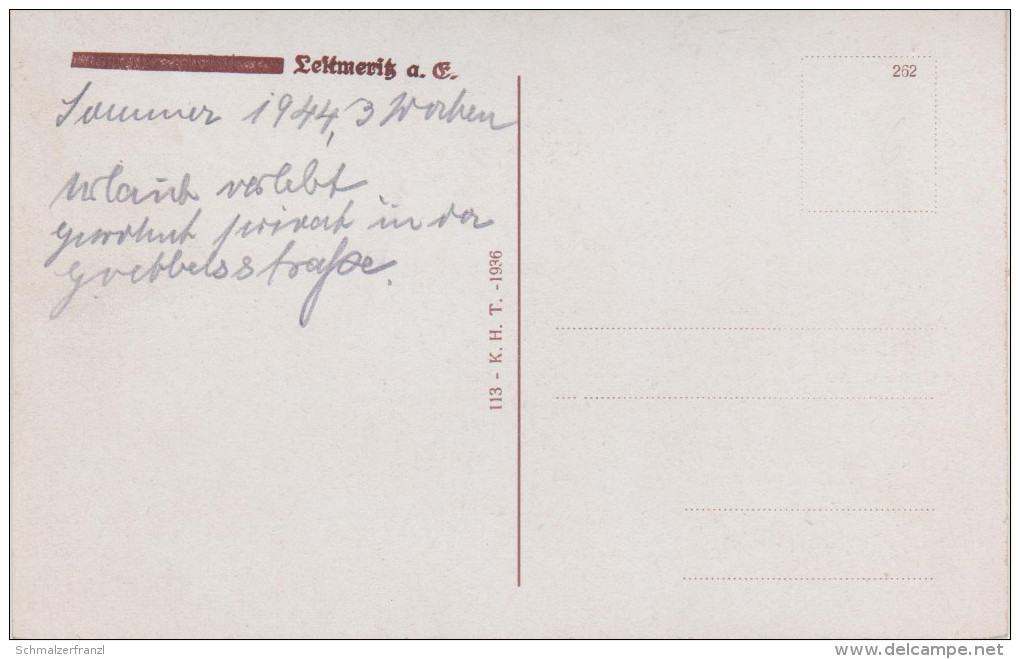 Leitmeritz a. E.
Sommer 1944, 3 Wochen
Urlaub verlebt.
gewohnt privat in der
Goebbelsstraße.
113 - K. H. T. -1936
262
Schmalzerfranzl
delcampe.net